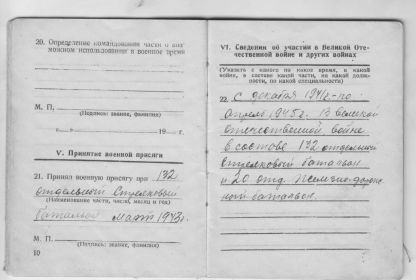 20. Определение командования части о воз-
можном использовании в военное время
М. П.
(Подпись: звание, фамилия)
«__» 19__ г.
V. Принятие военной присяги
21. Принял военную присягу при 132
отдельный Стрелковый
(Наименование части, число, месяц и год)
батальон март 1943г.
М. П.
(Подпись: звание, фамилия)
10
VI. Сведения об участии в Великой Оте-
чественной войне и других войнах
(Указать с какого по какое время, в какой
войне, в составе какой части, на какой долж-
ности, по какой специальности)
22. С декабря 1941г. по
апрель 1945г. В великой
отечественной войне
в составе 132 отдельный
стрелковый батальон
и 20 отд.
батальон.